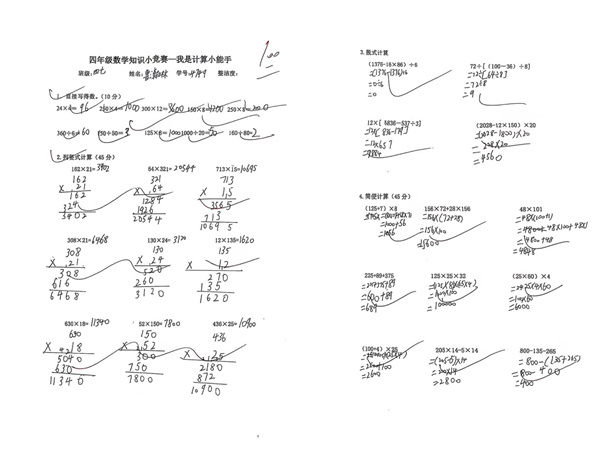 四年级数学知识小竞赛—我是计算小能手
100
班级: 四七 姓名: 学号: 整洁度:
1. 直接写得数。(10分)
24×4=96 250×4=1000 300×12=3600 150×8=1200 250×8=2000
360÷6=60 150÷50=3 125×8=1000 1000÷20=50 160÷80=2
2. 列竖式计算(45分)
162×21=3402 64×321=20544 713×15=10695
162 321 713
× 21 × 64 × 15
162 1284 3565
324 1926 713
3402 20544 10695
308×21=6468 130×24=3120 12×135=1620
308 130 135
× 21 × 24 × 12
308 520 270
616 260 135
6468 3120 1620
630×18=11340 52×150=7800 436×25=10900
630 150 436
× 18 × 52 × 25
5040 300 2180
630 750 872
11340 7800 10900
3. 脱式计算
(1376-16×86)÷6 72÷[(100-36)÷8]
=(1376-1376)÷6 =72÷[64÷8]
=0÷6 =72÷8
=0 =9
12×[5836-537÷3] (2028-12×150)×20
=(2028-1800)×20
=12×5657 =228×20
=4560
4. 简便计算(45分)
(125+7)×8 156×72+28×156 48×101
=156×(72+28) =48×(100+1)
=1000+56 =156×100 =48×100+48×1
=1056 =15600 =4800+48
=4848
225+89+375 125×25×32 (25×60)×4
=600+89 =25×4×60
=689 =100000 =100×60
=6000
(100+4)×25 205×14-5×14 800-135-265
=(205-5)×14 =800-(135+265)
=2500+100 =200×14 =800-400
=2600 =2800 =400